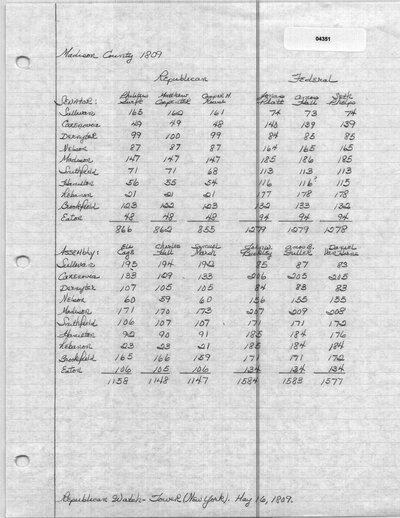 04351
Madison County 1809
Republican Federal
Senator: Philetus Swift Matthew Carpenter Casper M. Rouse Jonas Platt Amos Hall Seth Phelps
Sullivan 165 162 161 74 73 74
Cazenovia 49 49 48 140 139 139
Deruyter 99 100 99 84 85 85
Nelson 87 87 87 164 165 165
Madison 147 147 147 185 186 185
Smithfield 71 71 68 113 113 113
Hamilton 56 55 54 116 116 115
Lebanon 21 21 21 177 178 178
Brookfield 123 122 123 132 133 132
Eaton 48 48 48 94 94 94
866 862 855 1279 1279 1278
Assembly: Charles Hall Samuel Amos B. Fuller Daniel
Sullivan 195 194 192 85 87 83
Cazenovia 133 129 133 206 205 205
Deruyter 107 105 105 84 83 83
Nelson 60 59 60 156 155 155
Madison 171 170 173 207 209 208
Smithfield 106 107 107 171 171 172
Hamilton 92 90 91 185 184 176
Lebanon 23 23 21 185 184 184
Brookfield 165 166 159 171 171 172
Eaton 106 105 106 134 134 134
1158 1148 1147 1584 1583 1577
Republican Watch-Tower (New York). May 16, 1809.